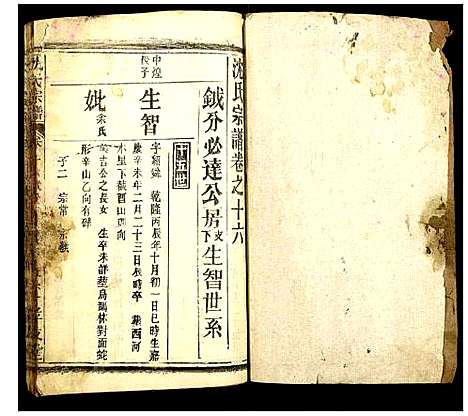 沈氏宗譜卷之十六
鉞分必達公房支下生智世系
十五世
中煌長子
生智
字 乾隆丙辰年十月初一日巳時生嘉
慶辛未年二月二十三日辰時卒 葬西河
木里下截酉山 向
妣
余氏
吉公之長女 生卒未詳葬烏 林對面蛇
形辛山乙向有碑
子二 宗常 宗
氏宗譜